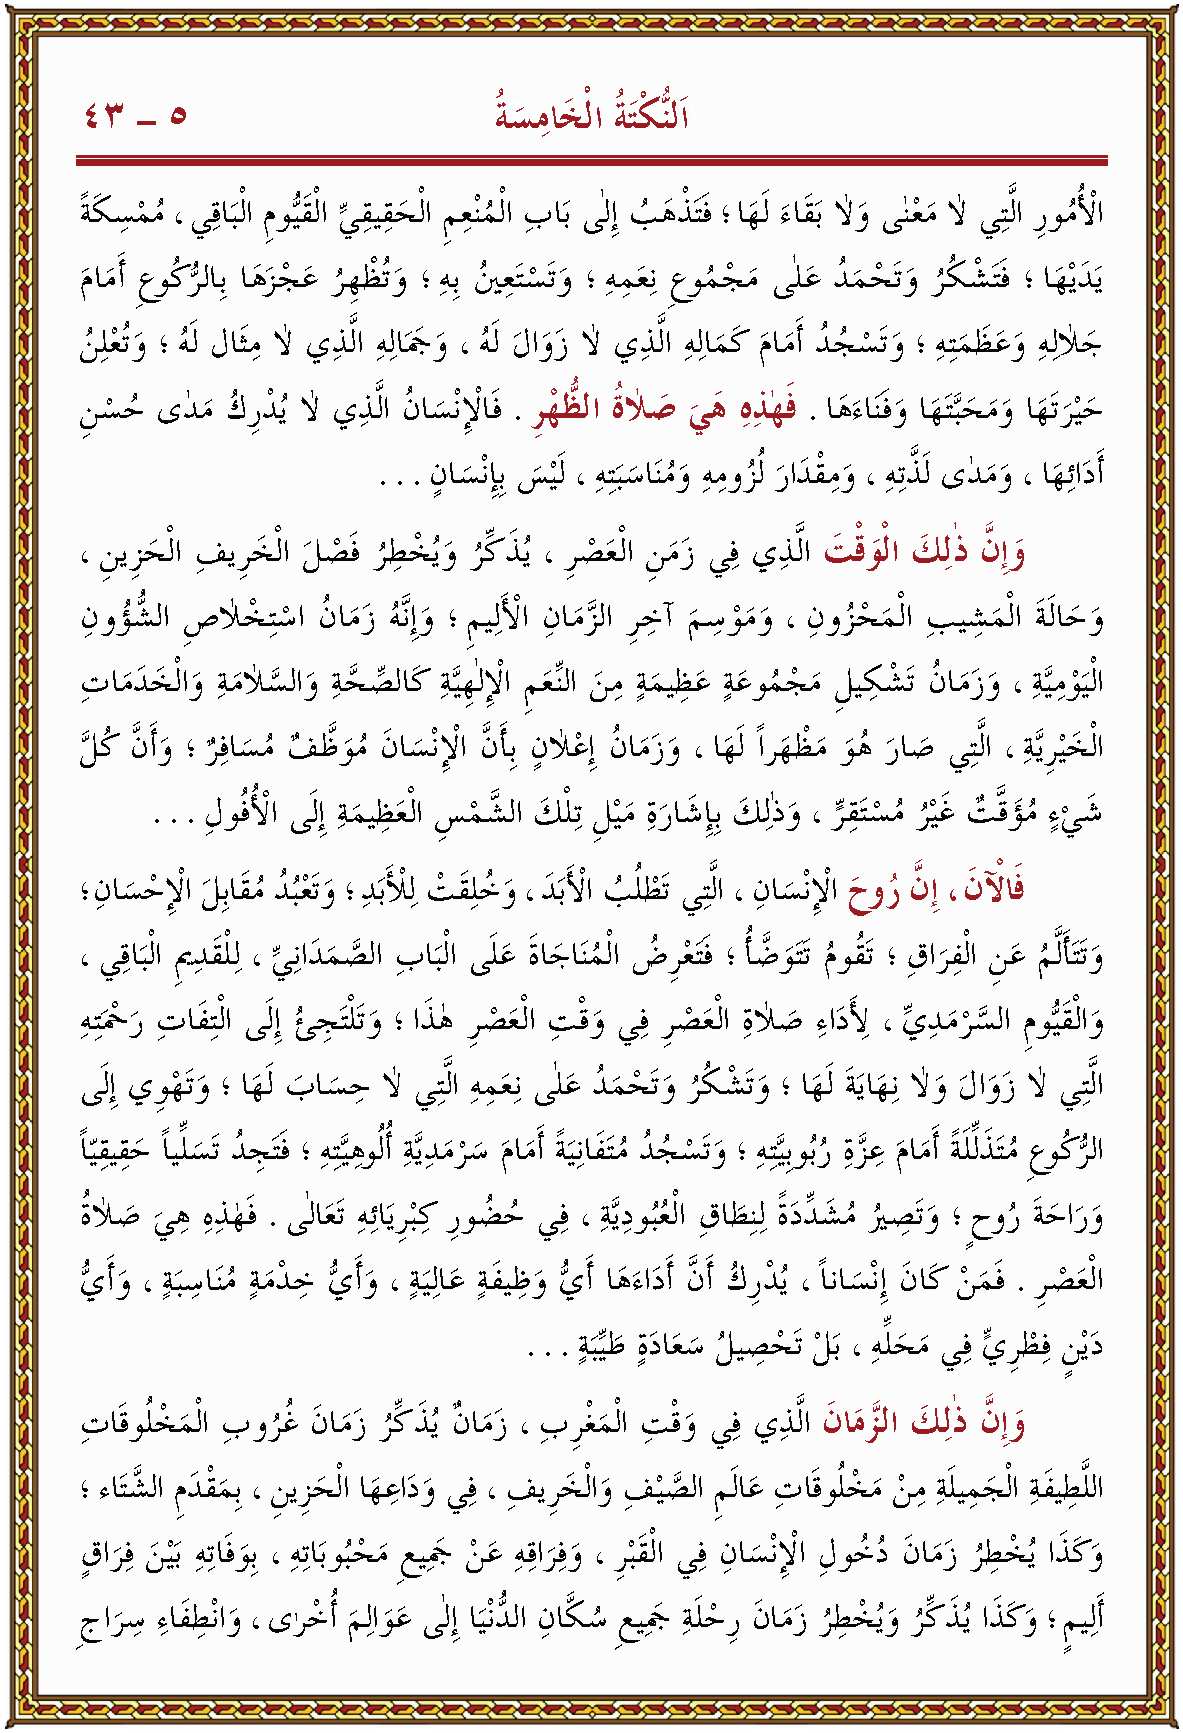 اَلنُّكْتَةُ الْخَامِسَةُ ٥ ــ ٤٣
الْأُمُورِ الَّتِي لاٰ مَعْنٰى وَلاٰ بَقَاءَ لَهَا ؛ فَتَذْهَبُ إِلٰى بَابِ الْمُنْعِمِ الْحَقِيقِيِّ الْقَيُّومِ الْبَاقِي ، مُمْسِكَةً
يَدَيْهَا ؛ فَتَشْكُرُ وَتَحْمَدُ عَلٰى مَجْمُوعِ نِعَمِهِ ؛ وَتَسْتَعِينُ بِهِ ؛ وَتُظْهِرُ عَجْزَهَا بِالرُّكُوعِ أَمَامَ
جَلاٰلِهِ وَعَظَمَتِهِ ؛ وَتَسْجُدُ أَمَامَ كَمَالِهِ الَّذِي لاٰ زَوَالَ لَهُ ، وَجَمَالِهِ الَّذِي لاٰ مِثَالَ لَهُ ؛ وَتُعْلِنُ
حَيْرَتَهَا وَمَحَبَّتَهَا وَفَنَاءَهَا . فَهٰذِهِ هَيَ صَلاٰةُ الظُّهْرِ . فَالْإِنْسَانُ الَّذِي لاٰ يُدْرِكُ مَدٰى حُسْنِ
أَدَائِهَا ، وَمَدٰى لَذَّتِهِ ، وَمِقْدَارَ لُزُومِهِ وَمُنَاسَبَتِهِ ، لَيْسَ بِإِنْسَانٍ . . .
وَإِنَّ ذٰلِكَ الْوَقْتَ الَّذِي فِي زَمَنِ الْعَصْرِ ، يُذَكِّرُ وَيُخْطِرُ فَصْلَ الْخَرِيفِ الْحَزِينِ ،
وَحَالَةَ الْمَشِيبِ الْمَحْزُونِ ، وَمَوْسِمَ آخِرِ الزَّمَانِ الْأَلِيمِ ؛ وَإِنَّهُ زَمَانُ اسْتِخْلاٰصِ الشُّؤُونِ
الْيَوْمِيَّةِ ، وَزَمَانُ تَشْكِيلِ مَجْمُوعَةٍ عَظِيمَةٍ مِنَ النِّعَمِ الْإِلٰهِيَّةِ كَالصِّحَّةِ وَالسَّلاٰمَةِ وَالْخَدَمَاتِ
الْخَيْرِيَّةِ ، الَّتِي صَارَ هُوَ مَظْهَراً لَهَا ، وَزَمَانُ إِعْلاٰنٍ بِأَنَّ الْإِنْسَانَ مُوَظَّفٌ مُسَافِرٌ ؛ وَأَنَّ كُلَّ
شَيْءٍ مُؤَقَّتٌ غَيْرُ مُسْتَقِرٍّ ، وَذٰلِكَ بِإِشَارَةِ مَيْلِ تِلْكَ الشَّمْسِ الْعَظِيمَةِ إِلَى الْأُفُولِ . . .
فَالْآنَ ، إِنَّ رُوحَ الْإِنْسَانِ ، الَّتِي تَطْلُبُ الْأَبَدَ ، وَخُلِقَتْ لِلْأَبَدِ ؛ وَتَعْبُدُ مُقَابِلَ الْإِحْسَانِ ؛
وَتَتَأَلَّمُ عَنِ الْفِرَاقِ ؛ تَقُومُ تَتَوَضَّأُ ؛ فَتَعْرِضُ الْمُنَاجَاةَ عَلَى الْبَابِ الصَّمَدَانِيِّ ، لِلْقَدِيمِ الْبَاقِي ،
وَالْقَيُّومِ السَّرْمَدِيِّ ، لِأَدَاءِ صَلاٰةِ الْعَصْرِ فِي وَقْتِ الْعَصْرِ هٰذَا ؛ وَتَلْتَجِئُ إِلَى الْتِفَاتِ رَحْمَتِهِ
الَّتِي لاٰ زَوَالَ وَلاٰ نِهَايَةَ لَهَا ؛ وَتَشْكُرُ وَتَحْمَدُ عَلٰى نِعَمِهِ الَّتِي لاٰ حِسَابَ لَهَا ؛ وَتَهْوِي إِلَى
الرُّكُوعِ مُتَذَلِّلَةً أَمَامَ عِزَّةِ رُبُوبِيَّتِهِ ؛ وَتَسْجُدُ مُتَفَانِيَةً أَمَامَ سَرْمَدِيَّةِ أُلُوهِيَّتِهِ ؛ فَتَجِدُ تَسَلِّياً حَقِيقِيّاً
وَرَاحَةَ رُوحٍ ؛ وَتَصِيرُ مُشَدِّدَةً لِنِطَاقِ الْعُبُودِيَّةِ ، فِي حُضُورِ كِبْرِيَائِهِ تَعَالٰى . فَهٰذِهِ هِيَ صَلاٰةُ
الْعَصْرِ . فَمَنْ كَانَ إِنْسَاناً ، يُدْرِكُ أَنَّ أَدَاءَهَا أَيُّ وَظِيفَةٍ عَالِيَةٍ ، وَأَيُّ خِدْمَةٍ مُنَاسِبَةٍ ، وَأَيُّ
دَيْنٍ فِطْرِيٍّ فِي مَحَلِّهِ ، بَلْ تَحْصِيلُ سَعَادَةٍ طَيِّبَةٍ . . .
وَإِنَّ ذٰلِكَ الزَّمَانَ الَّذِي فِي وَقْتِ الْمَغْرِبِ ، زَمَانٌ يُذَكِّرُ زَمَانَ غُرُوبِ الْمَخْلُوقَاتِ
اللَّطِيفَةِ الْجَمِيلَةِ مِنْ مَخْلُوقَاتِ عَالَمِ الصَّيْفِ وَالْخَرِيفِ ، فِي وَدَاعِهَا الْحَزِينِ ، بِمَقْدَمِ الشَّتَاءِ ؛
وَكَذَا يُخْطِرُ زَمَانَ دُخُولِ الْإِنْسَانِ فِي الْقَبْرِ ، وَفِرَاقِهِ عَنْ جَمِيعِ مَحْبُوبَاتِهِ ، بِوَفَاتِهِ بَيْنَ فِرَاقٍ
أَلِيمٍ ؛ وَكَذَا يُذَكِّرُ وَيُخْطِرُ زَمَانَ رِحْلَةِ جَمِيعِ سُكَّانِ الدُّنْيَا إِلٰى عَوَالِمَ أُخْرٰى ، وَانْطِفَاءِ سِرَاجِ